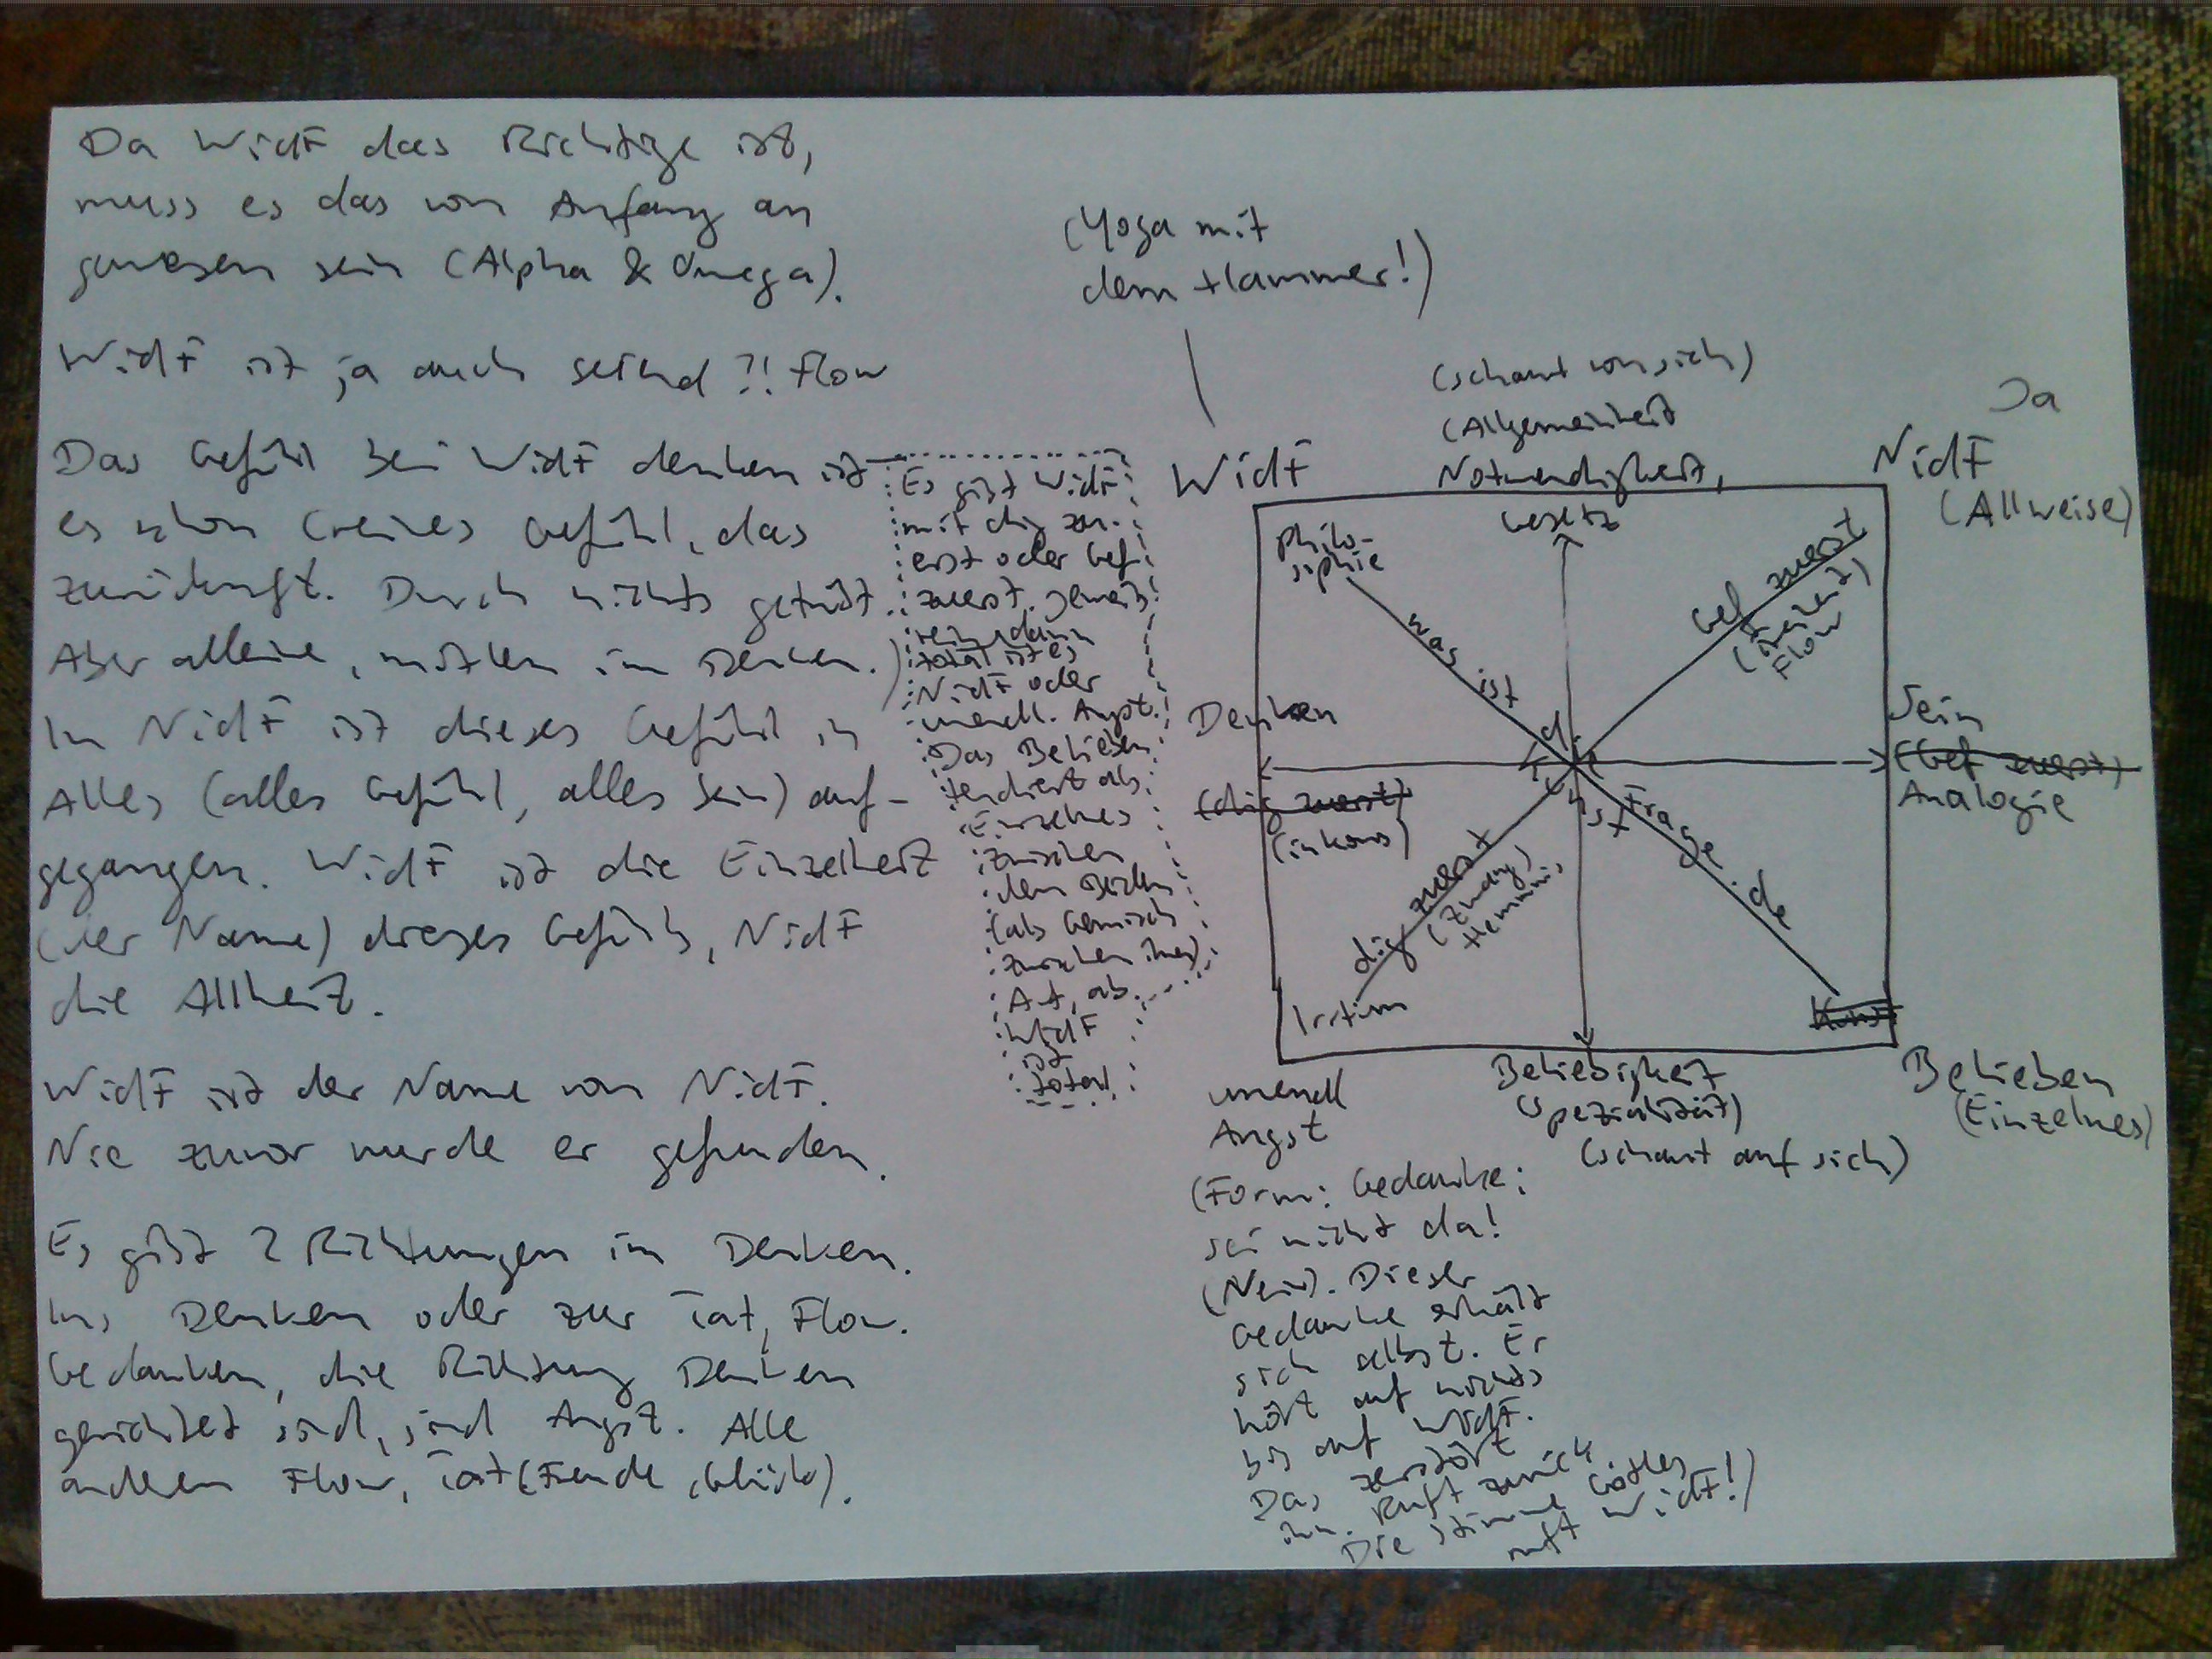 Da WidF das Richtige ist,
muss es das von Anfang an
gewesen sein (Alpha & Omega).
WidF ist ja auch seiend ?! Flow
Das Gefühl bei WidF denken ist
es schon (reines Gefühl, das
zurückruft. Durch nichts getrübt.
Aber alleine, mitten im Denken.)
In NidF ist dieses Gefühl in
Alles (alles Gefühl, alles Sein) auf-
gegangen. WidF ist die Einzelheit
(der Name) dieses Gefühls, NidF
die Allheit.
WidF ist der Name von NidF.
Nie zuvor wurde er gefunden.
Es gibt 2 Richtungen im Denken.
Ins Denken oder zur Tat, Flow.
Gedanken, die Richtung Denken
gerichtet sind, sind Angst. Alle
anderen Flow, Tat (Freude, Glück).
Es gibt WidF
mit dig zu-
erst oder Gef
zuerst. gemein
rein, dann
total ist es
NidF oder
unendl. Angst.
Das Belieben
tendiert als
Einzelnes
zwischen
den beiden
(als Gemisch
zwischen ihnen)
ab.
WidF
ist
total
(Yoga mit
dem Hammer!)
(schaut von sich)
(Allgemeinheit
Notwendigkeit,
Gesetz
Ja
WidF
NidF
(Allweise)
Philo-
sophie
was ist
d.
Kunst
Frage.de
Gef zuerst
(Freiheit)
Flow
Denken
(dig zuerst)
(inkons)
Sein
(Gef zuerst)
Analogie
dig zuerst
(Zwang)
Hemmnis
Irrtum
Kunst
unendl
Angst
Beliebigkeit
(Spezialität)
(schaut auf sich)
Belieben
(Einzelnes)
(Form: Gedanke:
sei nicht da!
(Nein). Dieser
Gedanke erhält
sich selbst. Er
hört auf nichts
bis auf WidF.
Das zerstört
ihn. Ruft zurück
Die Stimme Gottes
ruft WidF!)